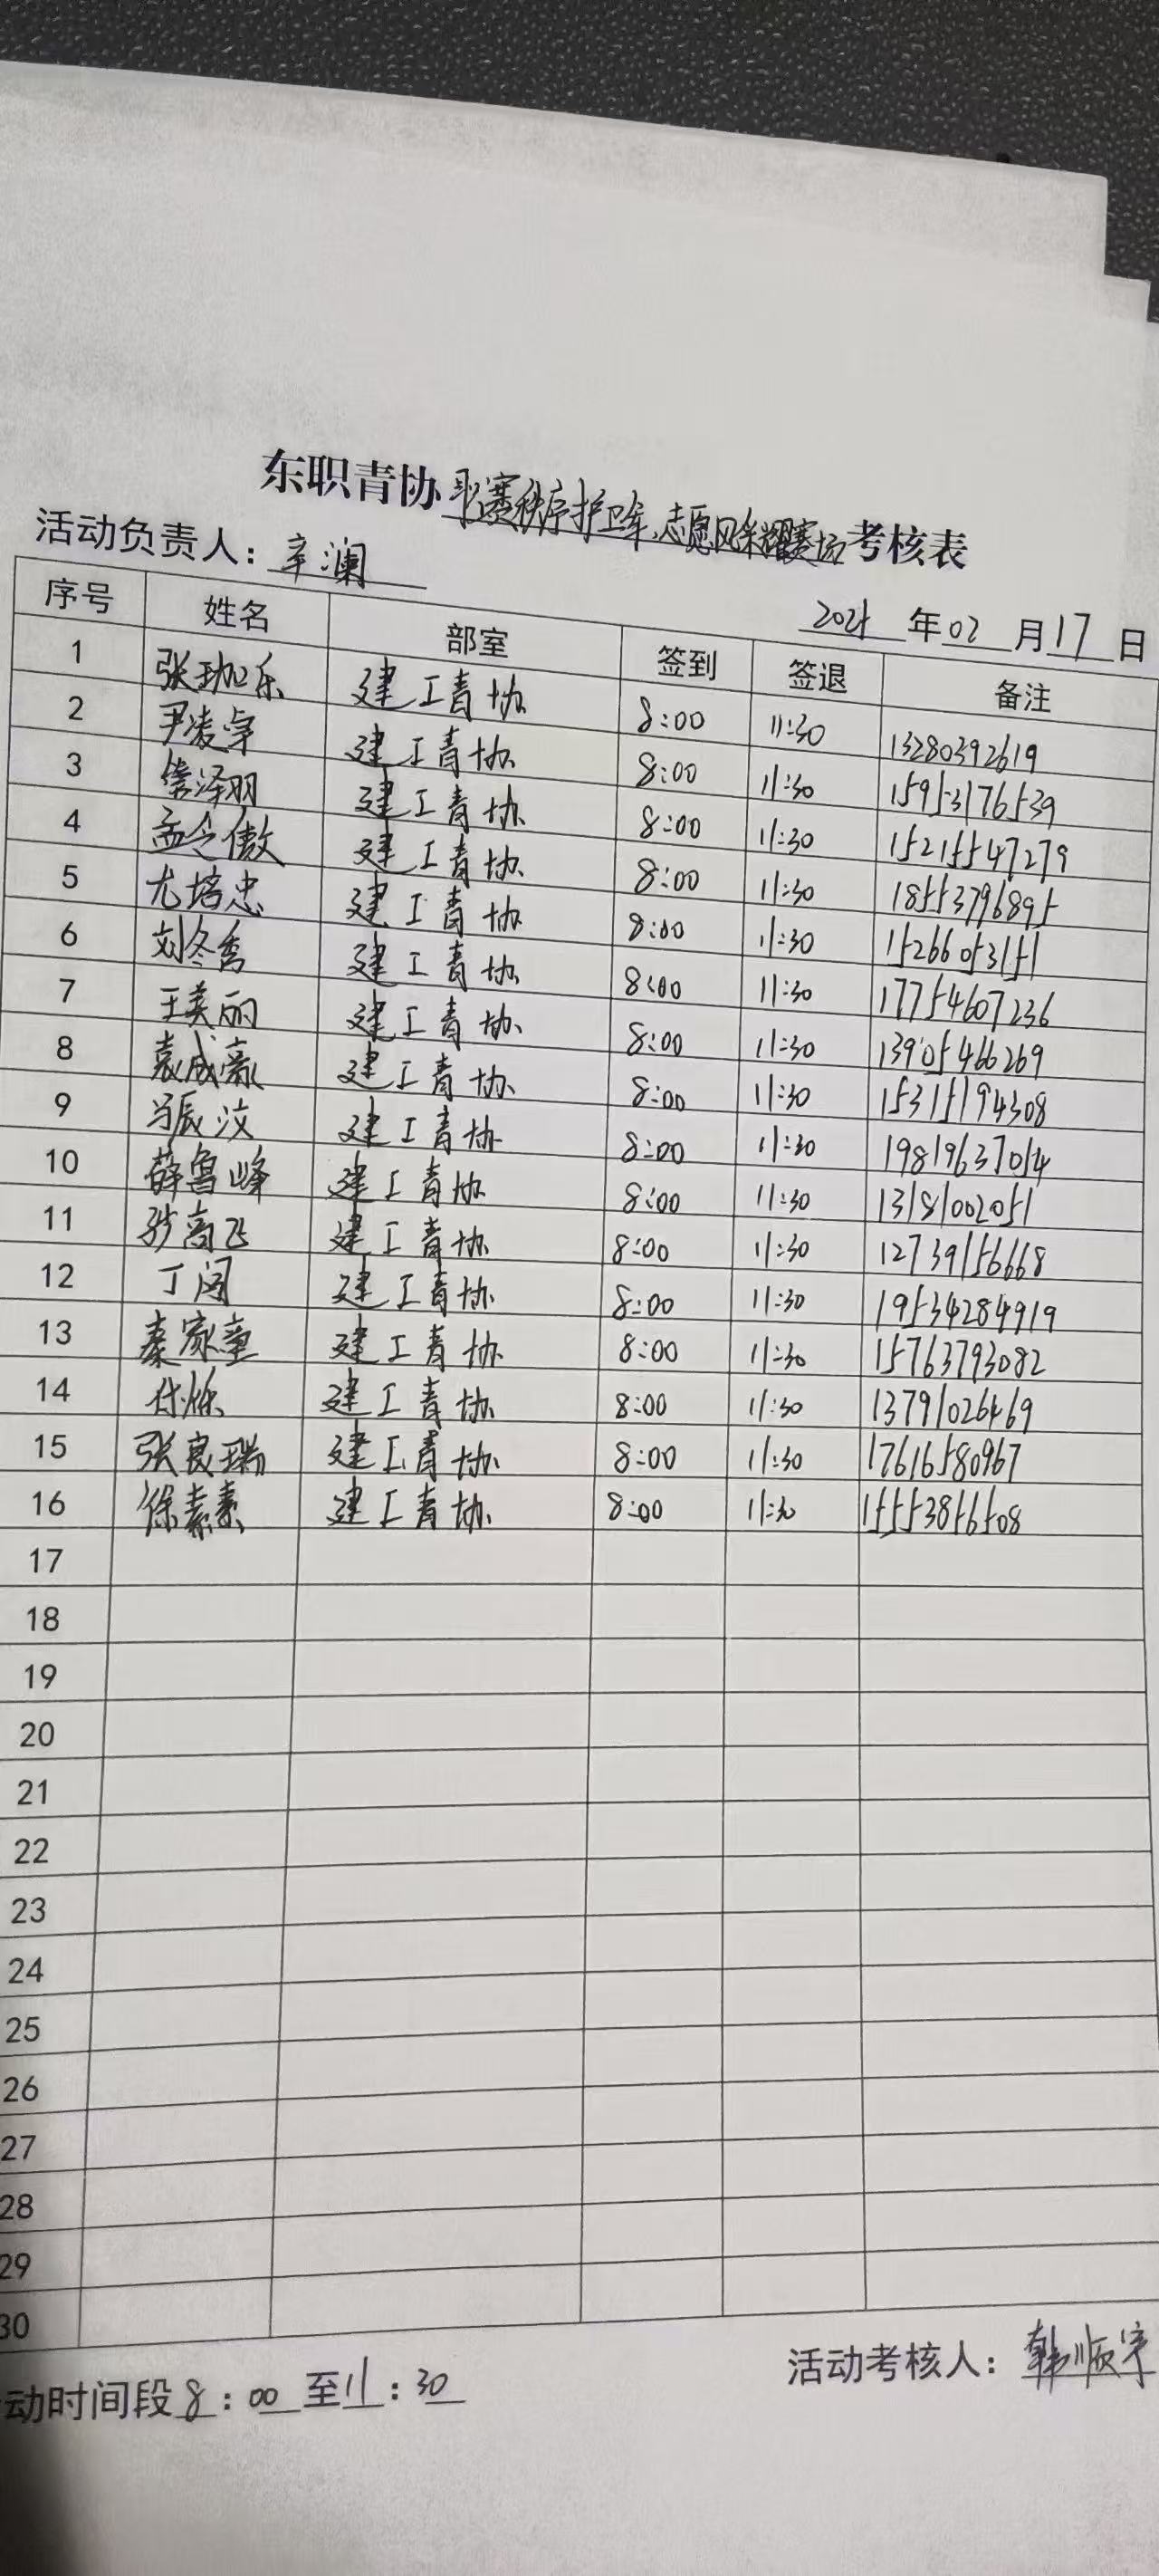 东职青协 联赛秩序护卫军,志愿风采耀赛场 考核表
活动负责人: 辛澜
年 02 月 17 日
序号 姓名 部室 签到 签退 备注
1 张珈乐 建工青协 8:00 11:30 13280392619
2 尹凌宇 建工青协 8:00 11:30 15953176539
3 泽羽 建工青协 8:00 11:30 15215547279
4 孟令傲 建工青协 8:00 11:30 18553796895
5 尤培忠 建工青协 8:00 11:30 15266053151
6 刘冬秀 建工青协 8:00 11:30 17754607236
7 王美丽 建工青协 8:00 11:30 13905466269
8 袁成豪 建工青协 8:00 11:30 15315194308
9 辰汶 建工青协 8:00 11:30 19819637054
10 薛鲁峰 建工青协 8:00 11:30 13181002051
11 高飞 建工青协 8:00 11:30 12739156668
12 丁阔 建工青协 8:00 11:30 19534284919
13 秦家童 建工青协 8:00 11:30 15763793082
14 付烁 建工青协 8:00 11:30 13791026469
15 张良瑞 建工青协 8:00 11:30 17616580967
16 徐素素 建工青协 8:00 11:30 15553856508
17
18
19
20
21
22
23
24
25
26
27
28
29
30
动时间段 8:00 至 11:30
活动考核人: 韩顺宇